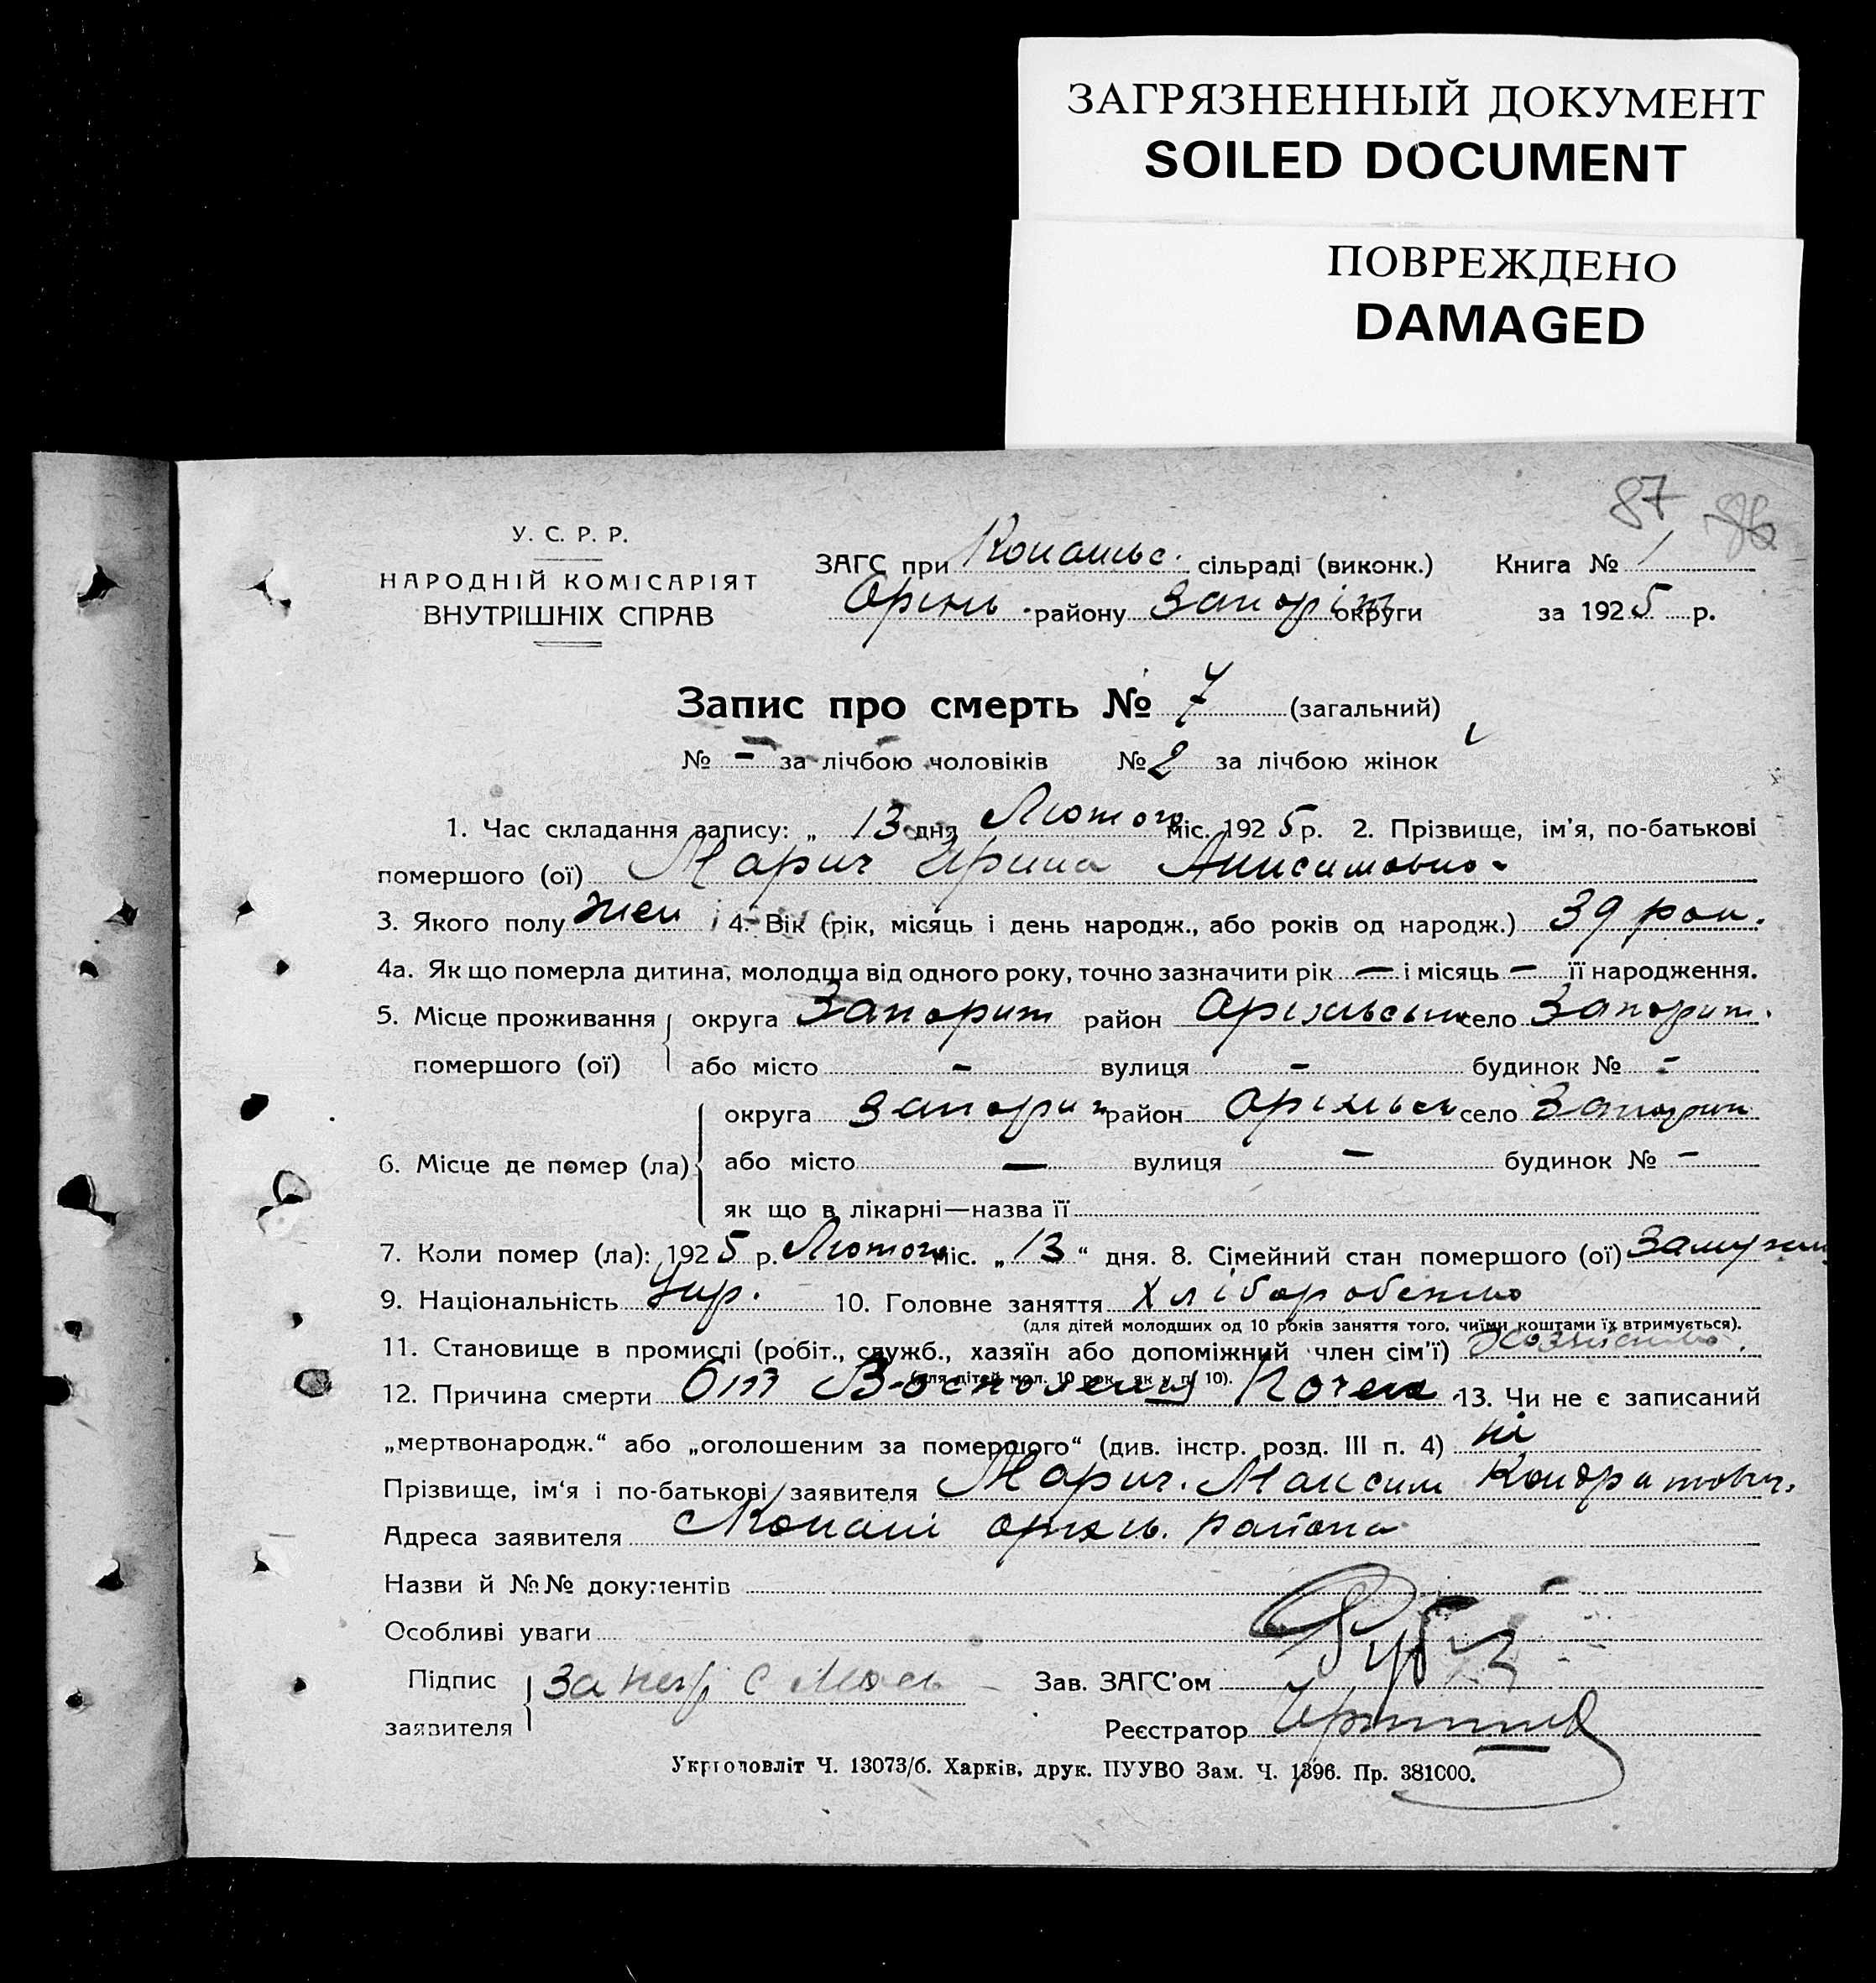 ЗАГРЯЗНЕННЫЙ ДОКУМЕНТ
SOILED DOCUMENT
ПОВРЕЖДЕНО
DAMAGED
87 86
У. С. Р. Р.
НАРОДНІЙ КОМІСАРІЯТ
ВНУТРІШНІХ СПРАВ
ЗАГС при Копансь. сільраді (виконк.) Книга № 1
Оріхь. району Запоріж округи за 1925 р.
Запис про смерть № 7 (загальний)
№ - за лічбою чоловіків № 2 за лічбою жінок
1. Час складання запису: „ 13 дня Лютого міс. 1925 р. 2. Прізвище, ім'я, по-батькові
помершого (ої) Марич Ирина Анисимовна
3. Якого полу жен 4. Вік (рік, місяць і день народж., або років од народж.) 39 рок.
4а. Як що померла дитина, молодща від одного року, точно зазначити рік — і місяць — її народження.
5. Місце проживання округа Запориж район Оріхівськ село Запориж.
помершого (ої) або місто - вулиця - будинок № -
округа Запориж район Оріхівсь село Запориж
6. Місце де помер (ла) або місто — вулиця — будинок № -
як що в лікарні—назва її
7. Коли помер (ла): 1925 р. Лютого міс. „ 13 “ дня. 8. Сімейний стан помершого (ої) Замужн
9. Національність Укр. 10. Головне заняття Хліборобство
(для дітей молодших од 10 років заняття того, чиїми коштами їх втримується).
11. Становище в промислі (робіт., служб., хазяїн або допоміжний член сім'ї)
(для дітей мол. 10 рок. як у п. 10).
12. Причина смерти От Восполения Почек 13. Чи не є записаний
„мертвонародж.“ або „оголошеним за помершого“ (див. інстр. розд. III п. 4) ні
Прізвище, ім'я і по-батькові заявителя Марич. Максим Кондратович.
Адреса заявителя с Копані оріхь. района
Назви й №№ документів
Особливі уваги
Підпис
заявителя
За негр
Зав. ЗАГС'ом
Реєстратор
Укрголовліт Ч. 13073/б. Харків, друк. ПУУВО Зам. Ч. 1396. Пр. 381000.